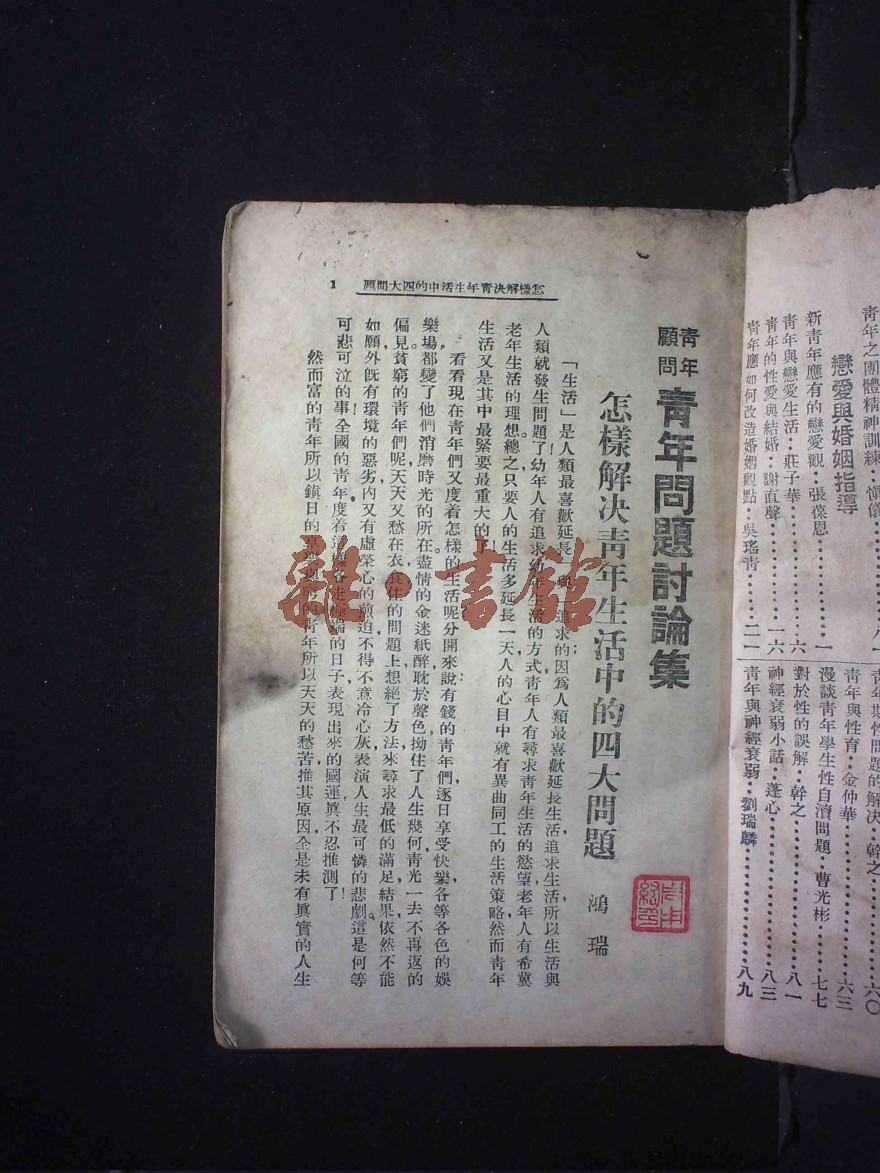 青年之團體精神訓練‥愼儀
戀愛與婚姻指導
新青年應有的戀愛觀‥張葆恩‥一
青年與戀愛生活‥莊子華‥六
青年的性愛與結婚‥謝直聲‥一六
青年應如何改造婚姻觀點‥吳瑤青‥二一
性問題的解決‥幹之‥六〇
青年與性育‥金仲華‥六三
漫談青年學生性自瀆問題‥曹光彬‥七七
對於性的誤解‥幹之‥八一
神經衰弱小話‥蓬心‥八三
青年與神經衰弱‥劉瑞麟‥八九
怎樣解決青年生活中的四大問題 1
青年顧問 青年問題討論集
怎樣解決青年生活中的四大問題 鴻瑞
「生活」是人類最喜歡延長追求的因爲人類最喜歡延長生活,追求生活所以生活與
人類就發生問題了幼年人有追求幼年生活的方式青年人有尋求青年生活的慾望老年人有希冀
老年生活的理想總之只要人的生活多延長一天人的心目中就有異曲同工的生活策略然而青年
生活又是其中最緊要最重大的了!
看看現在青年們又度着怎樣的生活呢分開來說有錢的青年們,逐日享受快樂各等各色的娛
樂場,都變了他們消磨時光的所在。盡情的金迷紙醉,耽於聲色,拗住了人生幾何,青光一去不再返的
偏見。貧窮的青年們呢,天天又愁在衣食住的問題上,想絕了方法,來尋求最低的滿足,結果,依然不能
如願,外既有環境的惡劣,內又有虛榮心的煎迫,不得不意冷心灰,表演人生最可憐的悲劇。這是何等
可悲可泣的事!全國的青年,度着這樣各走極端的日子,表現出來的國運,眞不忍推測了!
然而富的青年所以鎭日的享樂,窮的青年所以天天的愁苦,推其原因,全是未有眞實的人生
雜書館